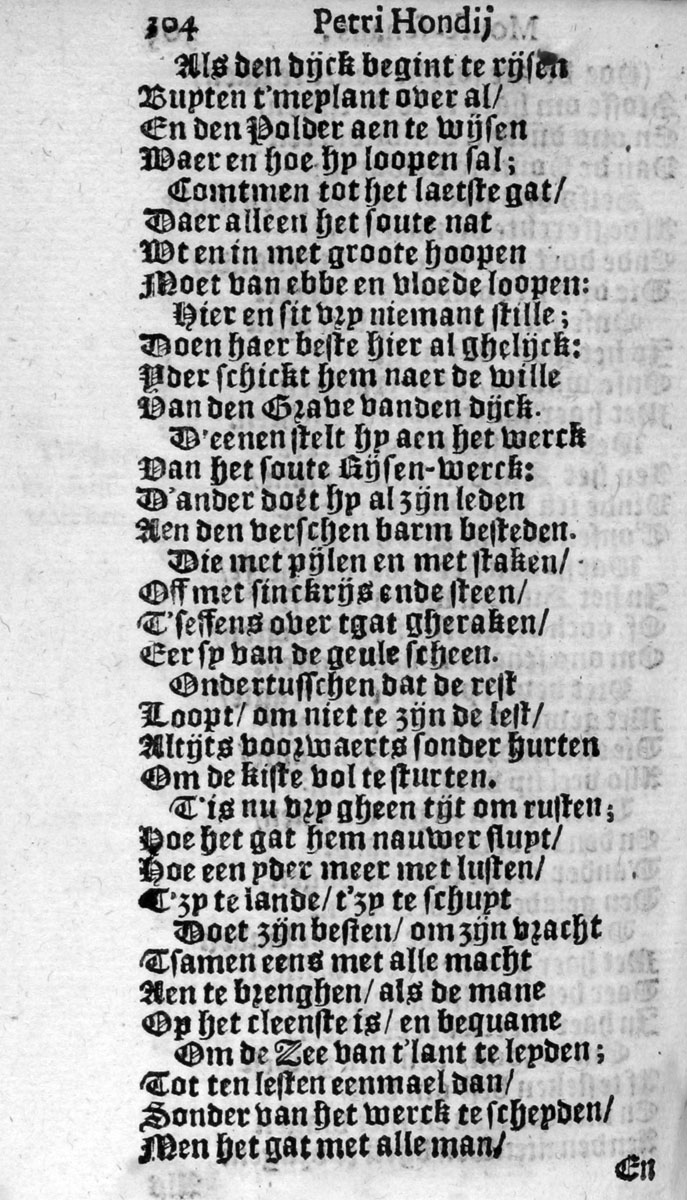 304 Petri Hondij
Als den dijck begint te rijsen
Buyten t'meyplant over al/
En den Polder aen te wijsen
Waer en hoe hy loopen sal;
Comtmen tot het laetste gat/
Daer alleen het soute nat
Wt en in met groote hoopen
Moet van ebbe en vloede loopen:
Hier en sit vry niemant stille;
Doen haer beste hier al ghelijck:
Yder schickt hem naer de wille
Van den Grave vanden dijck.
D'eenen stelt hy aen het werck
Van het soute Rijsen-werck:
D'ander doet hy al zijn leden
Aen den verschen barm besteden.
Die met pijlen en met staken/
Off met sinckrijs ende steen/
T'seffens over tgat gheraken/
Eer sy van de geule scheen.
Ondertusschen dat de rest
Loopt/ om niet te zijn de lest/
Altijts voorwaerts sonder hurten
Om de kiste vol te sturten.
T'is nu vry gheen tijt om rusten;
Hoe het gat hem nauwer sluyt/
Hoe een yder meer met lusten/
T'zy te lande/ t'zy te schuyt
Doet zijn besten/ om zijn vracht
Tsamen eens met alle macht
Aen te brenghen/ als de mane
Op het cleenste is/ en bequame
Om de Zee van t'lant te leyden;
Tot ten lesten eenmael dan/
Sonder van het werck te scheyden/
Men het gat met alle man/
En